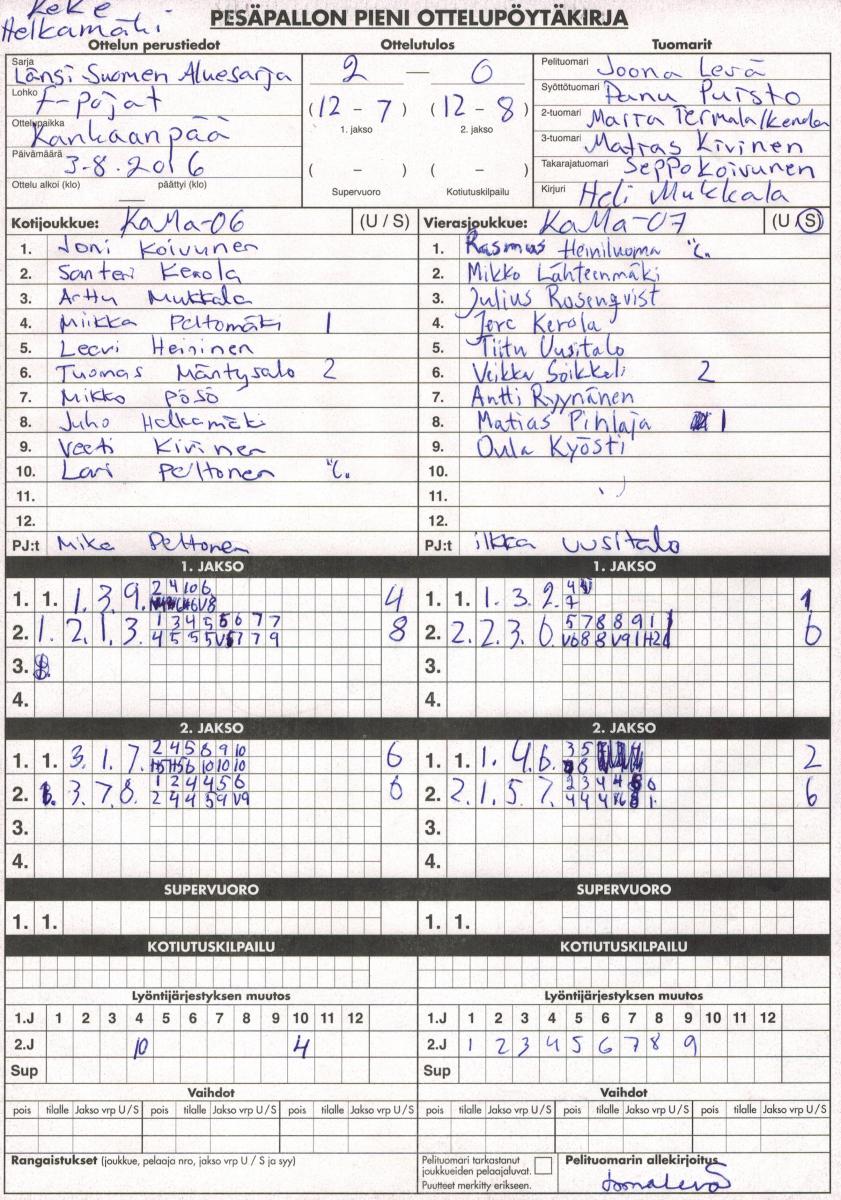 Keke
Helkamäki
PESÄPALLON PIENI OTTELUPÖYTÄKIRJA
Ottelun perustiedot Ottelutulos Tuomarit
Sarja Länsi Suomen Aluesarja
Lohko F-pojat
Ottelupaikka Kankaanpää
Päivämäärä 3.8.2016
Ottelu alkoi (klo) — päättyi (klo)
2 — 0
(12 - 7) (12 - 8)
1. jakso 2. jakso
( - ) ( - )
Supervuoro Kotiutuskilpailu
Pelituomari Joona Levä
Syöttötuomari Panu Puisto
2-tuomari Marra Termala/Kenola
3-tuomari Matias Kivinen
Takarajatuomari Seppo Koivunen
Kirjuri Heli Mukkala
Kotijoukkue: KaMa-06 (U / S) Vierasjoukkue: KaMa-07 (U / S)
1. Joni Koivunen
2. Santeri Kerola
3. Arttu Mukkala
4. Miikka Peltomäki 1
5. Leevi Heininen
6. Tuomas Mäntysalo 2
7. Mikko Pösö
8. Juho Helkamäki
9. Veeti Kivinen
10. Lari Peltonen "C.
11.
12.
PJ:t Mika Peltonen
1. Rasmus Heiniluoma "C.
2. Mikko Lähteenmäki
3. Julius Rosenqvist
4. Jere Kerola
5. Tiitu Uusitalo
6. Veikka Soikkeli 2
7. Antti Ryynänen
8. Matias Pihlaja 1
9. Oula Kyösti
10.
11.
12.
PJ:t ilkka uusitalo
1. JAKSO 1. JAKSO
1. 1. 1. 3. 9. 2 4 10 6 4
2. 1. 2. 1. 3. 1 3 4 5 5 6 7 7 8
4 5 5 5 V5 7 7 9
3.
4.
1. 1. 1. 3. 2. 4 1
7
2. 2. 2. 3. 6. 5 7 8 8 9 1 1 6
V6 8 8 V9 1 H2
3.
4.
2. JAKSO 2. JAKSO
1. 1. 3. 1. 7. 2 4 5 6 9 10 6
H5 H5 6 10 10 10
2. 3. 7. 8. 1 2 4 4 5 6 6
2 4 4 5 9 V9
3.
4.
1. 1. 1. 4. 6. 3 5 2
8
2. 2. 1. 5. 7. 2 3 4 4 6 6
4 4 4 8 1
3.
4.
SUPERVUORO SUPERVUORO
1. 1. 1. 1.
KOTIUTUSKILPAILU KOTIUTUSKILPAILU
Lyöntijärjestyksen muutos Lyöntijärjestyksen muutos
1.J 1 2 3 4 5 6 7 8 9 10 11 12 1.J 1 2 3 4 5 6 7 8 9 10 11 12
2.J 10 4 2.J 1 2 3 4 5 6 7 8 9
Sup Sup
Vaihdot Vaihdot
pois tilalle Jakso vrp U / S pois tilalle Jakso vrp U / S pois tilalle Jakso vrp U / S pois tilalle Jakso vrp U / S pois tilalle Jakso vrp U / S pois tilalle Jakso vrp U / S
Rangaistukset (joukkue, pelaaja nro, jakso vrp U / S ja syy)
Pelituomari tarkastanut
joukkueiden pelaajaluvat.
Puutteet merkitty erikseen.
Pelituomarin allekirjoitus
Joona Levä